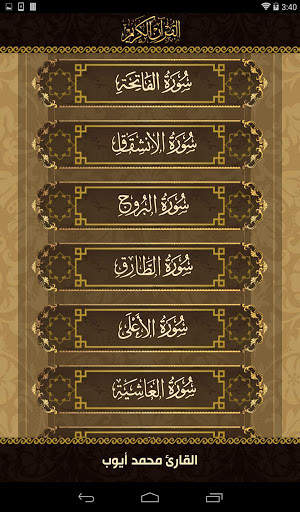 3:40
القرآن الكريم
سُورَةُ الفَاتِحَة
سُورَةُ الانشِقَاق
سُورَةُ البُرُوج
سُورَةُ الطَّارِق
سُورَةُ الأَعْلَى
سُورَةُ الغَاشِيَة
القارئ محمد أيوب